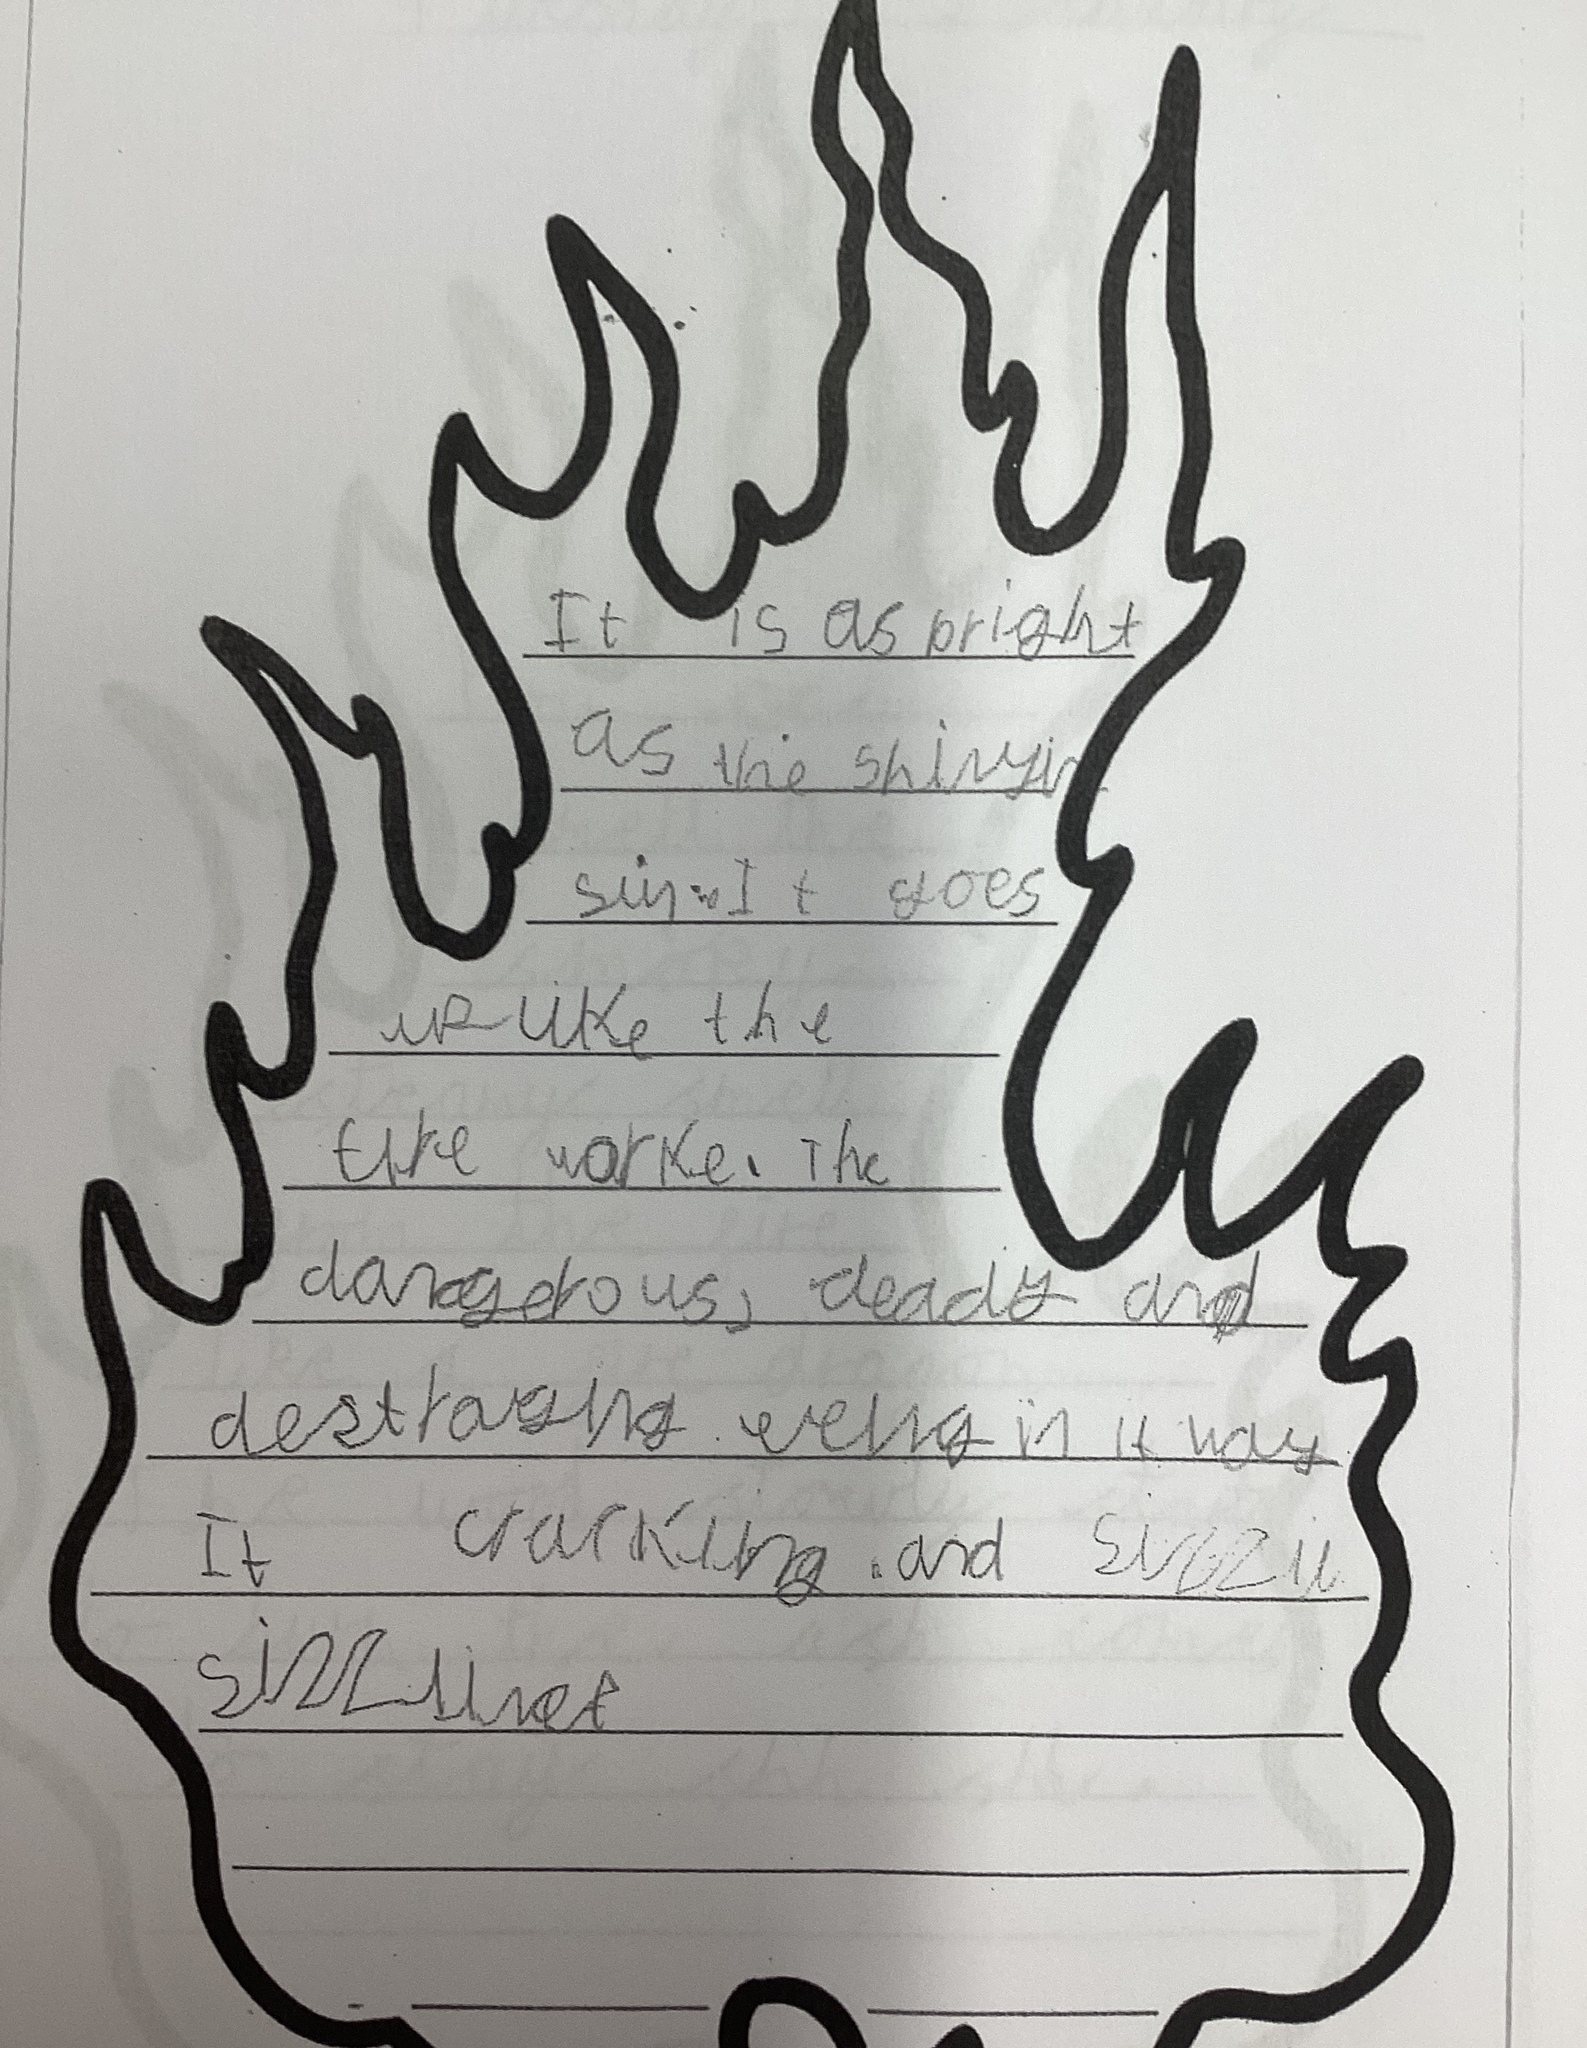 It is as pright
as the shinyin
sun. It goes
up like the
fire worke. The
dangerous, deady and
destroaying. eveng in it way
It crarking. and sizzil
sizzling